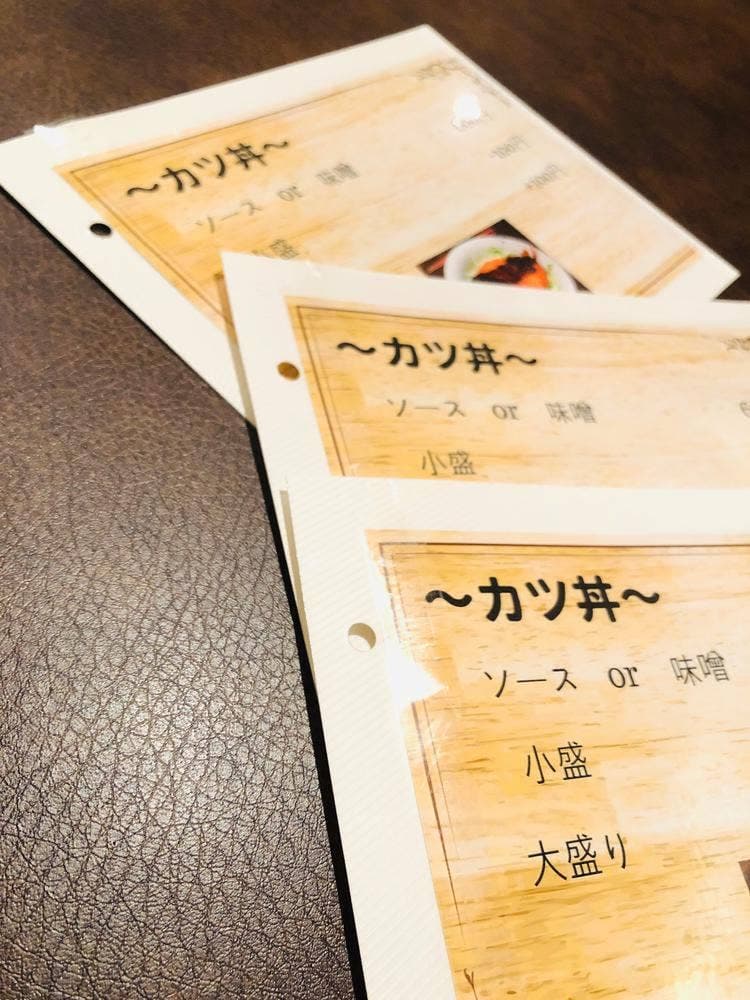 ～カツ丼～
ソース or 味噌
小盛
～カツ丼～
ソース or 味噌
小盛
～カツ丼～
ソース or 味噌
小盛
大盛り